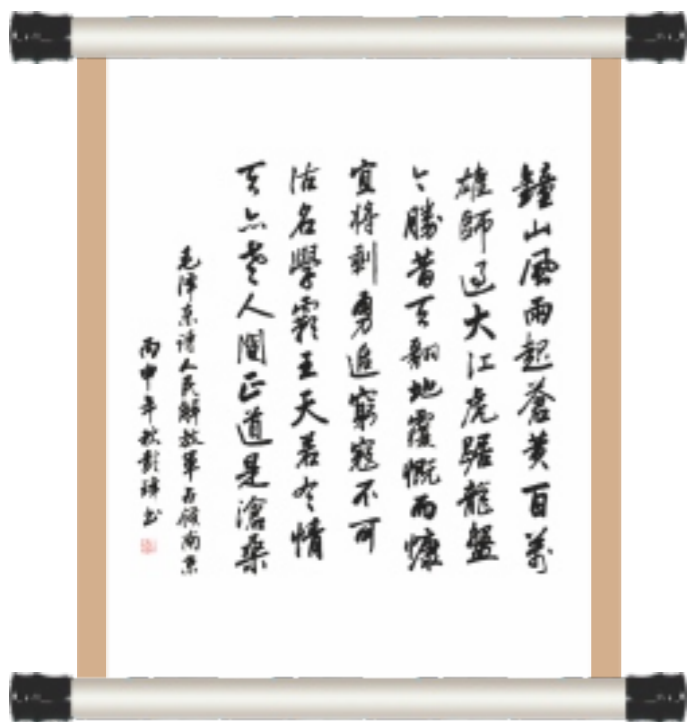 鐘山風雨起蒼黃百萬
雄師过大江虎踞龍盤
今勝昔天翻地覆慨而慷
宜將剩勇追窮寇不可
沽名學霸王天若有情
天亦老人間正道是滄桑
毛澤东诗人民解放軍占領南京
丙申年秋彭 书